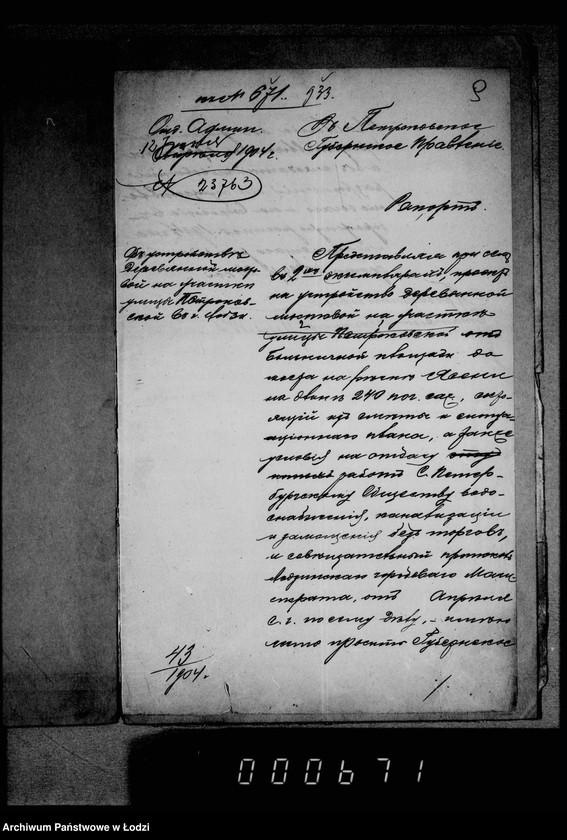 671. 933.
9
Отд. Админ.
12
1904 г.
№ 23763
Въ Петроковское
Губернское Правленіе
Рапортъ.
Объ устройствѣ
деревянной мосто-
вой на участкѣ
улицы Петроков-
ской въ г. Лодзи.
Представляя при семъ
въ 2хъ экземплярахъ, проектъ
на устройство деревянной
мостовой на участкѣ
улицы Петроковской отъ
Больничной площади до
моста на рѣкѣ Ясени
на длинѣ 240 пог. саж., состо-
ящій изъ смѣты и ситуа-
ціоннаго плана, а также
условія на отдачу
работъ С. Петер-
бургскому Обществу водо-
снабженія, канализаціи
и замощенія безъ торговъ,
и совѣщательный протоколъ
Лодзинскаго городоваго Маги-
страта, отъ Апрѣля
с. г. по сему дѣлу, - имѣю
честь просить Губернское
43
1904 г.
000671
Archiwum Państwowe w Łodzi